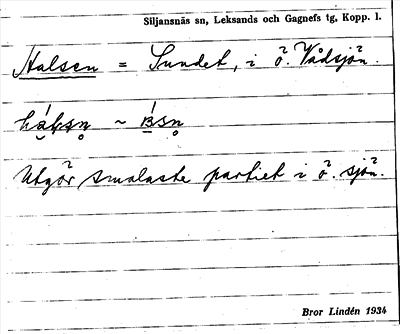 Siljansnäs sn, Leksands och Gagnefs tg, Kopp. l.
Halsen = Sundet, i ö. Vådsjön.
Utgör smalaste partiet i ö. sjön.
Bror Lindén 1934